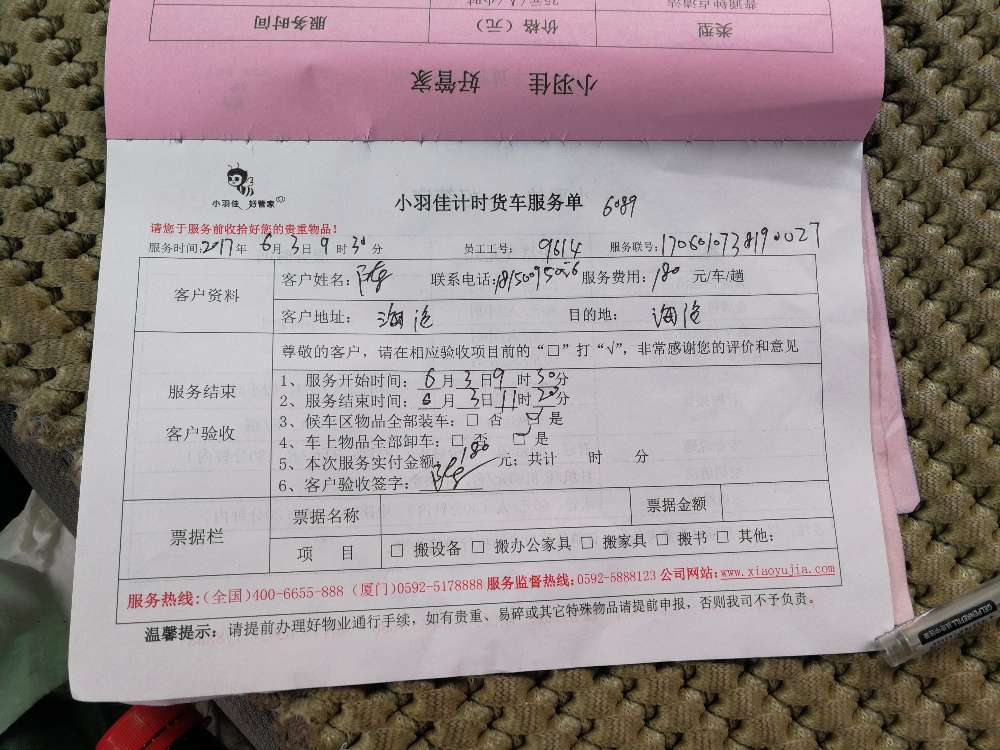 普通钟点清洁 25元/人/小时
类型 价格（元） 服务时间
小羽佳 好管家
小羽佳 好管家
小羽佳计时货车服务单 6089
请您于服务前收拾好您的贵重物品！
服务时间:2017年6月3日9时30分 员工工号: 9614 服务联号:1706010738190027
客户资料
客户姓名: 联系电话: 服务费用: 180 元/车/趟
客户地址: 海沧 目的地: 海沧
服务结束
客户验收
尊敬的客户，请在相应验收项目前的“□”打“√”，非常感谢您的评价和意见
1、服务开始时间: 6月3日9时30分
2、服务结束时间: 6月3日11时20分
3、候车区物品全部装车: □ 否 ☑ 是
4、车上物品全部卸车: □ 否 ☑ 是
5、本次服务实付金额 180 元; 共计 时 分
6、客户验收签字:
票据栏
票据名称 票据金额
项 目 □ 搬设备 □ 搬办公家具 □ 搬家具 □ 搬书 □ 其他:
服务热线:(全国)400-6655-888 (厦门)0592-5178888 服务监督热线:0592-5888123 公司网站:www.xiaoyujia.com
温馨提示: 请提前办理好物业通行手续，如有贵重、易碎或其它特殊物品请提前申报，否则我司不予负责。